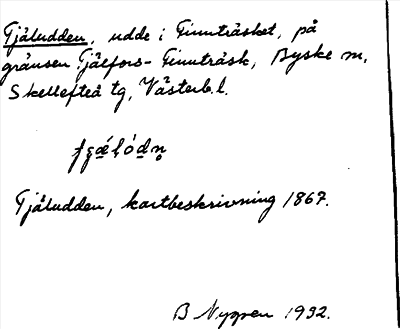 Tjäludden, udde i Finnträsket, på
gränsen Tjälfors-Finnträsk, Byske sn,
Skellefteå tg, Västerb. l.
Tjäludden, kartbeskrivning 1867.
B Nygren 1932.